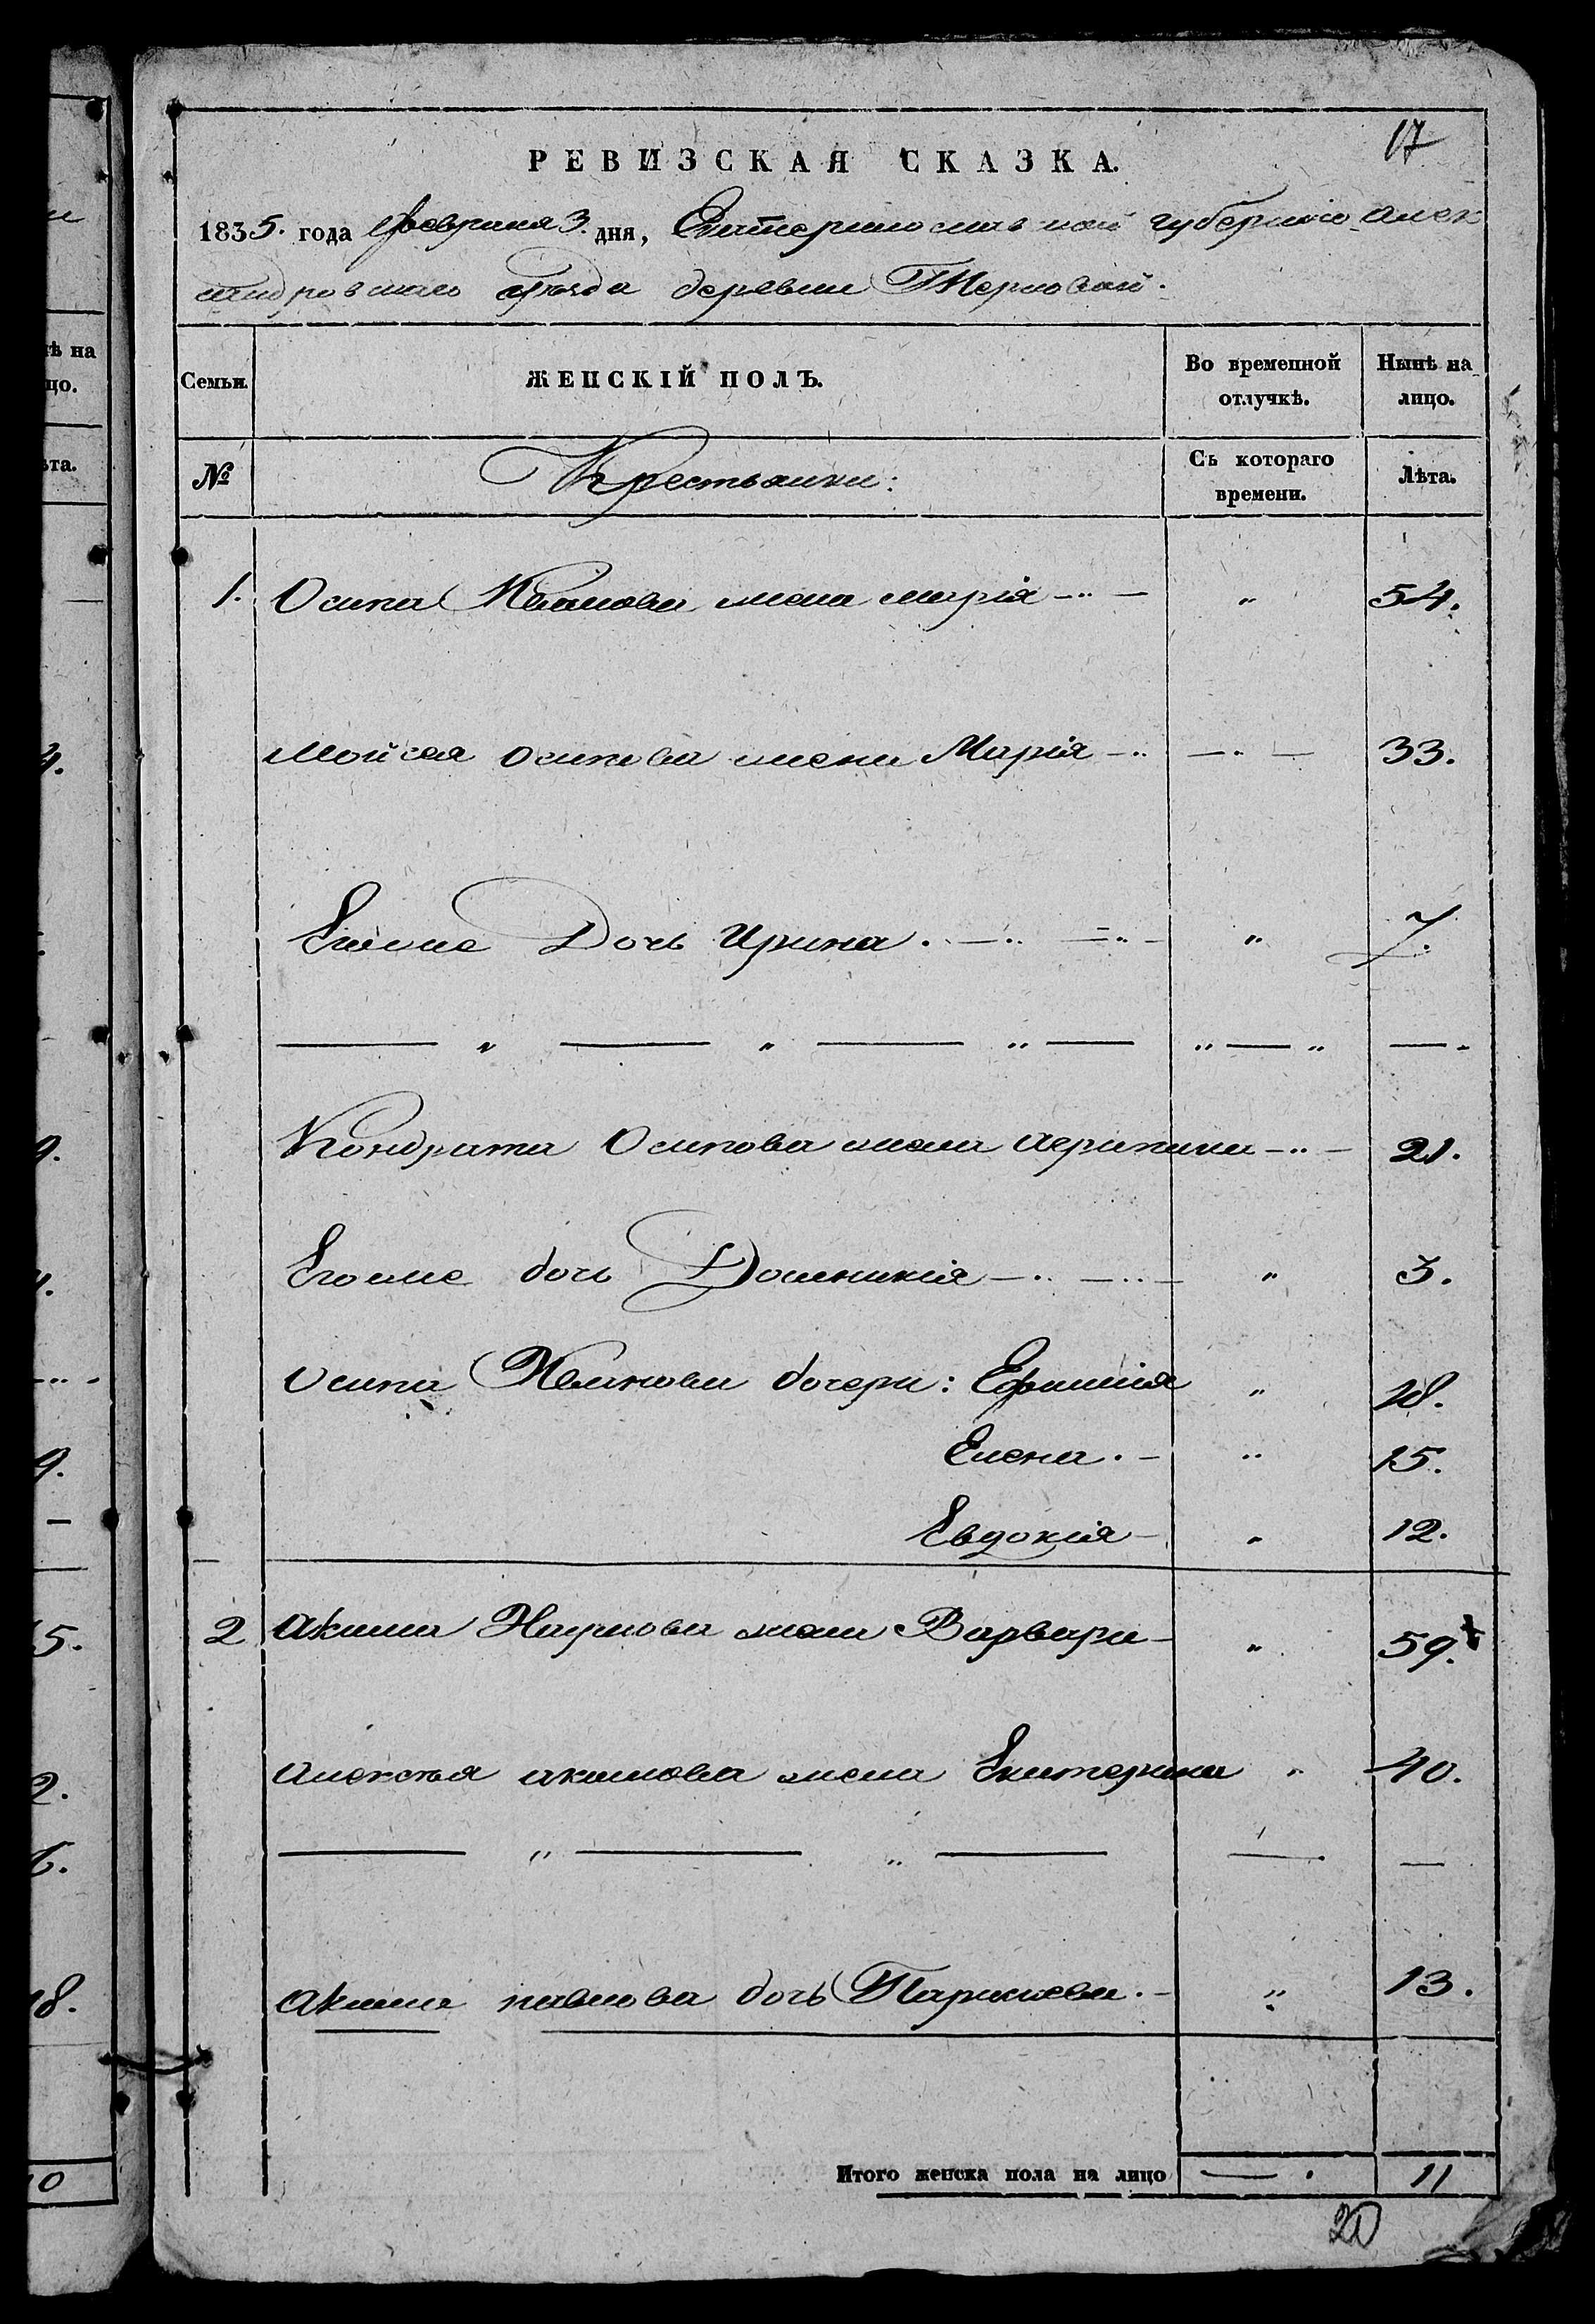 17
РЕВИЗСКАЯ СКАЗКА.
1835. года Февраля 3. дня, Екатеринославской губернiи Алек
сандровскаго уѣзда деревни Терновой.
Семьи. ЖЕНСКIЙ ПОЛЪ. Во временной отлучкѣ. Нынѣ на лицо.
№ Крестьянки: Съ котораго времени. Лѣта.
1. Осипа Иванова жена марiя — „ 54.
Мойсея осипова жена Марiя — 33.
Егоже Дочь Ирина. „ 7.
Кондрата Осипова жена агрипина — 21.
Егоже дочь Домникiя — „ 3.
Осипа дочери: Ефимiя „ 18.
Елена. „ 15.
Евдокiя „ 12.
2 Акима Наумова жена Варвара „ 59.
алексѣя акимова жена Екатерина „ 40.
акима павлова дочь Парасковья. „ 13.
Итого женска пола на лицо — . 11
20
ѣ на
цо.
та.
4.
9.
9.
5.
2.
18.
10